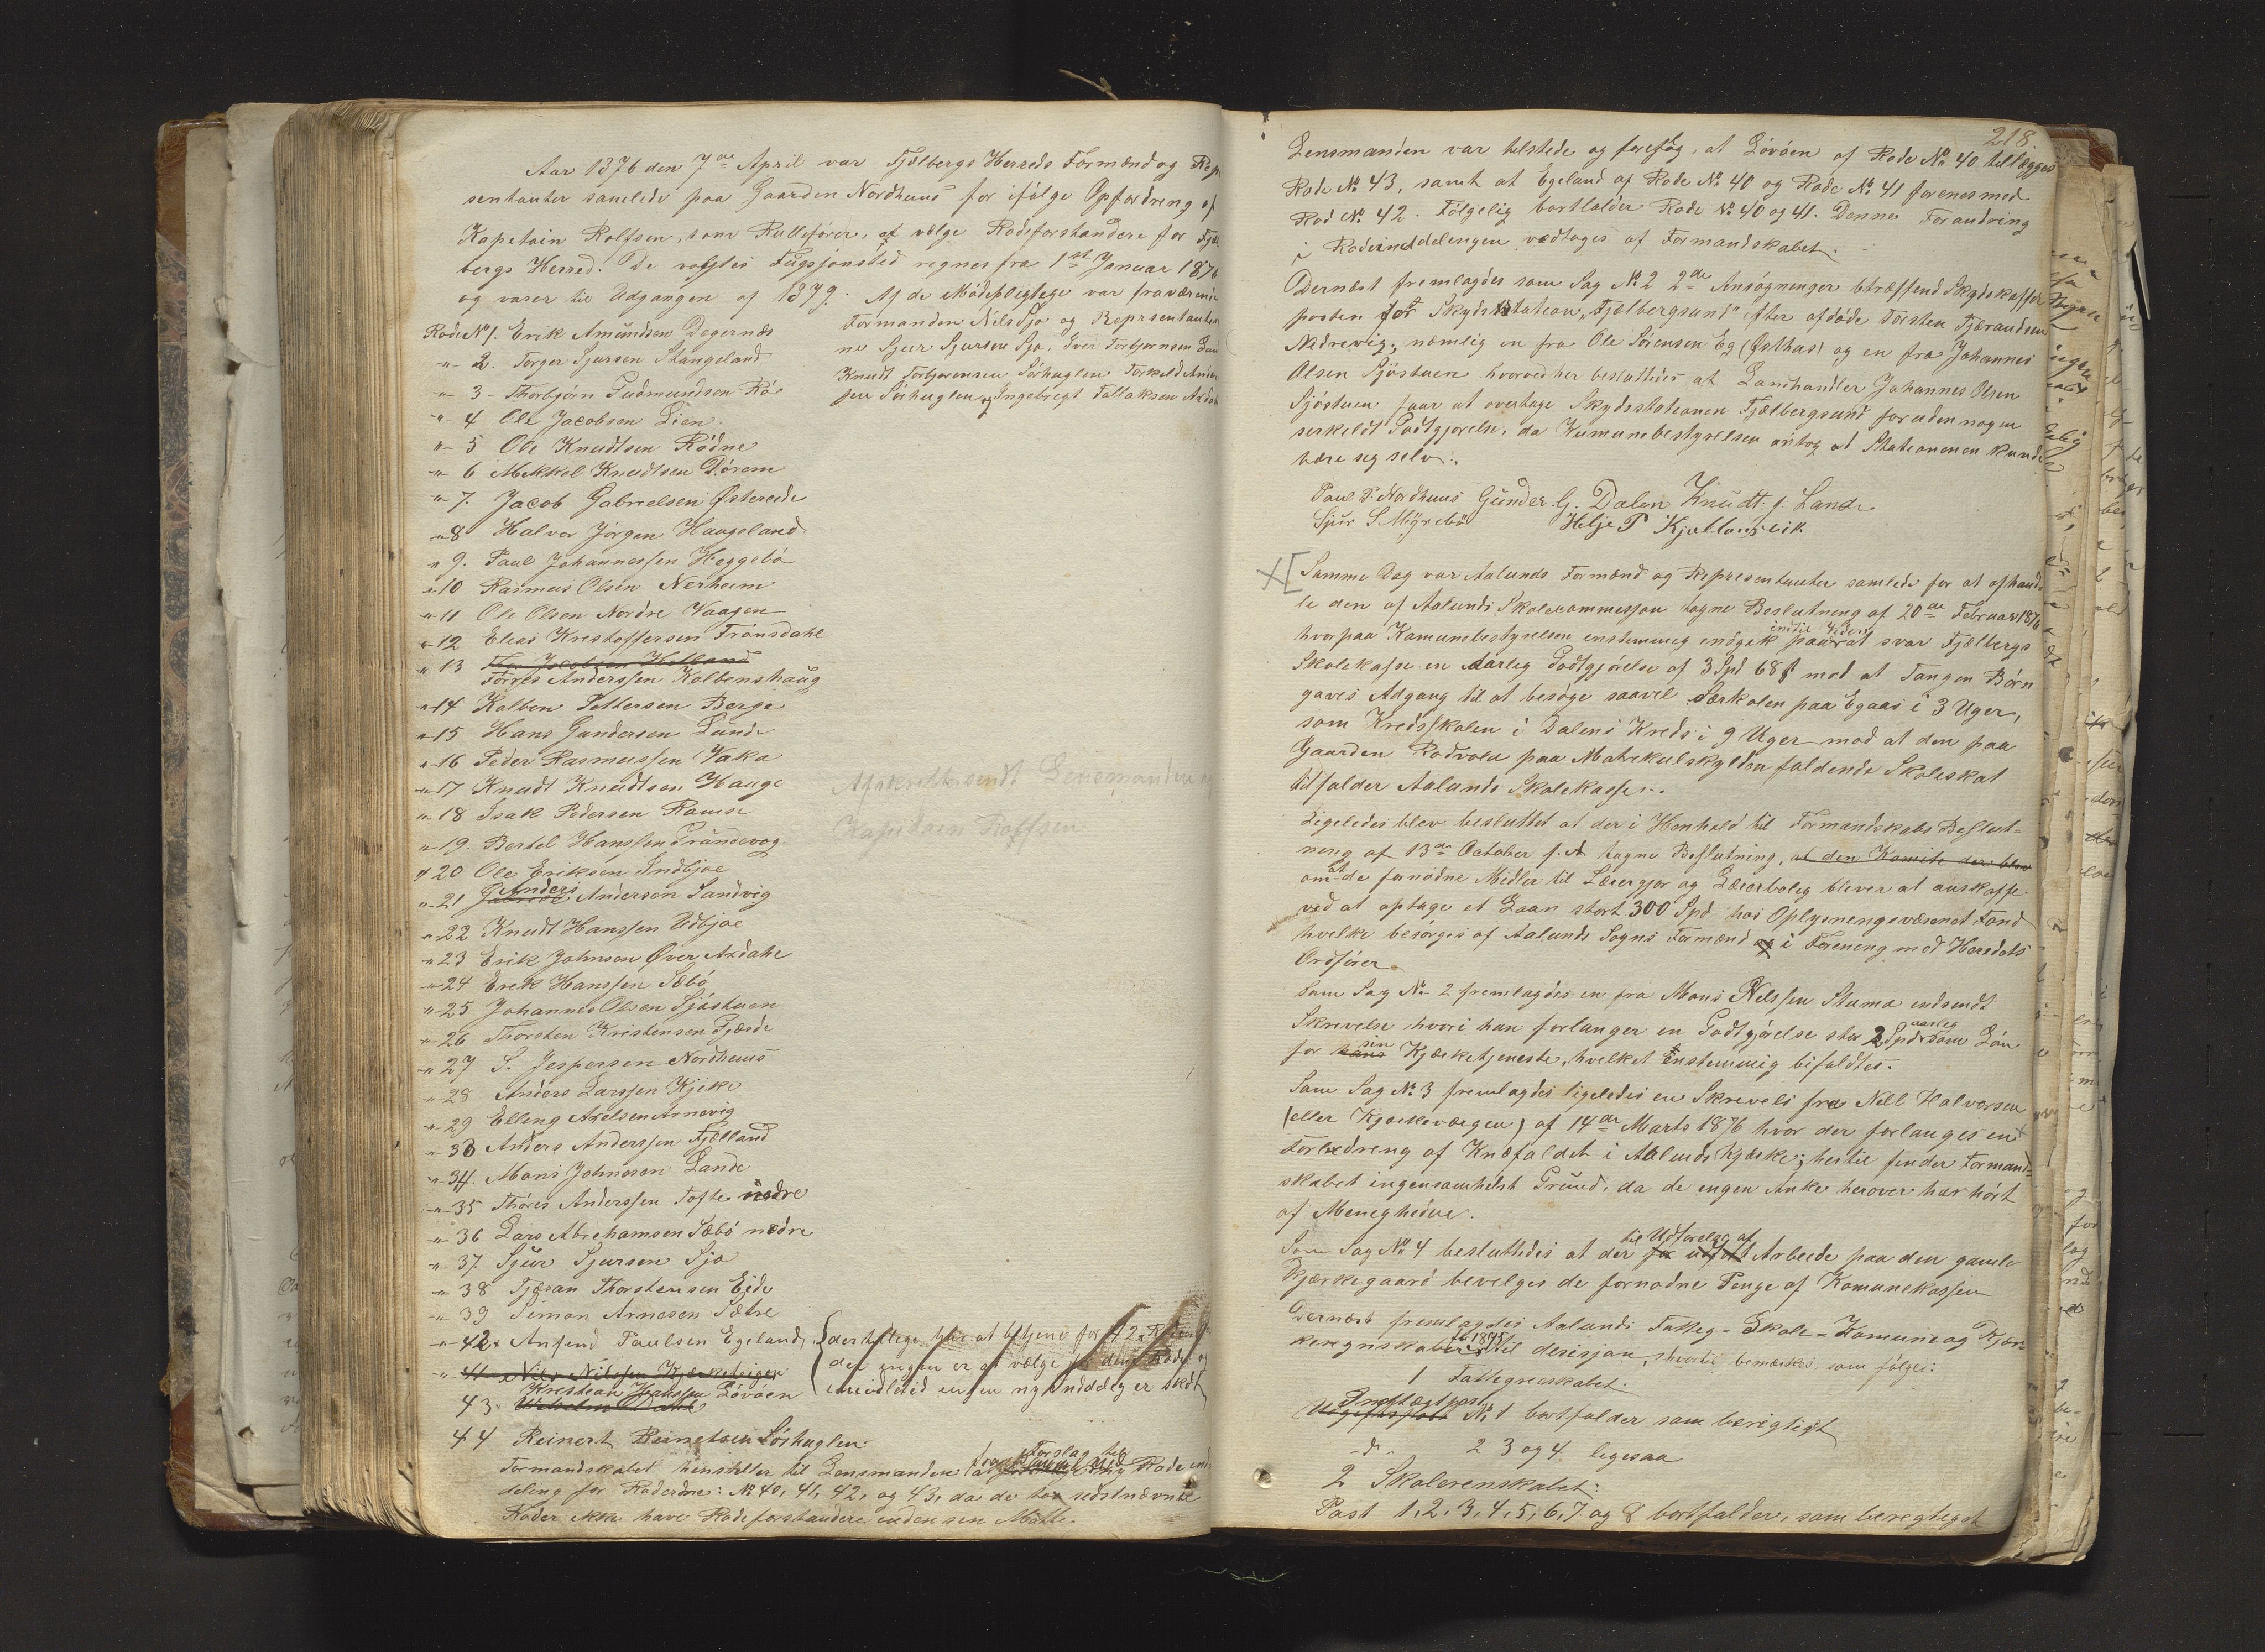 Aar 1876 den 7de April var Fjelbergs Herreds Formænd og Repr
sentanter samlede paa Gaarden Nordhuus for ifølge Opfordring af
Kapetain Rolfsen, som Rullefører, at vælge Rodeforstandere for Fjel
bergs Herred. De valgtes Fugsjonstid regnes fra 1ste Januar 1876
og varer til Udgangen af 1879. Af de Mødepligtige var fraværende
Formanden Nils Sjo og Reprsentanter
ne Sjur Sjursen Sjo, Iver Torbjørnsen
Knudt Torbjørnsen Sørhuglen Torkeld
sen Sørhuglen og Ingebregt Tollaksen Axdal
Rode No 1. Erik Amundsen Degernæs
-"- 2. Torger Sjursen Stangeland
-"- 3 - Thorbjørn Gudmundsen Rø
-"- 4 Ole Jacobsen Lien.
-"- 5 Ole Knudtsen Rødne
-"- 6 Mekkel Knudtsen Dørem
-"- 7. Jacob Gabrielsen Østereide
-"- 8 Halvor Jörgen Haugeland
-"- 9. Paul Johannessen Heggebø
-"- 10 Rasmus Olsen Nerheim
-"- 11 Ole Olsen Nordre Vaagen
-"- 12 Elias Krestoffersen Frønsdahl
-"- 13 Tor Jacobsen Holland
Torres Anderssen Kolbenshaug
-"- 14 Kolben Settersen Berge
-"- 15 Hans Gundersen Lunde
-"- 16 Peder Rasmussen Vaka
-"- 17 Knudt Knudtsen Hauge
-"- 18 Isak Pedersen Ramse
-"- 19. Bertel Hanssen Grindevog
-"- 20 Ole Eriksen Indbjoe
-"- 21 Gabriel Anders Andersen Sandvig
-"- 22 Knudt Hanssen Udbjoe
-"- 23 Erik Johnsen Øver Axdahl
-"- 24 Erik Hanssen Sæbø
-"- 25 Johannes Olsen Sjøstuen
-"- 26 Thorsten Kristensen Gjerde
-"- 27 S. Jespersen Nordhuus
-"- 28 Anders Larssen Kjeke
-"- 29 Elling Axelsen Arnevig
-"- 33 Anders Anderssen Fjelland
-"- 34. Mons Johnesen Lande
-"- 35 Thores Anderssen Tofte nedre
-"- 36 Lars Abrehamsen Sæbø nedre
-"- 37. Sjur Sjursen Sjo
-"- 38 Tjeran Thorstensen Eide
-"- 39 Simon Arnesen Sætre
-"- 42. Anfind Paulsen Egeland
-"- 41 Nils Nilssen Kjerketeigen
Krestian Hanssen Løvøen
43.
44 Reinert Reinertsen Sørhuglen
Afskrift tilsendt Lensmanden og
Kapitain Rolfsen
Formandskabet henstiller til Lensmanden Forslag til Rode ind
deling for Roderne: No 40, 41, 42, og 43, da de to sidstnævnte
Roder ikke have Rodeforstandere inden sin Midte
218.
Lensmanden var tilstede og foreslog, at Løvøen af Rode No 40 tillægges
Rode No 43, samt at Egeland af Rode No 40 og Rode No 41 forenes med
Rod No 42. Følgelig bortfalder Rode No 40 og 41. Denne Forandring
i Rodeinddelingen vedtoges af Formandskabet.
Dernæst fremlagdes som Sag No 2 2de Ansøgninger betræffend Skydskaffer
posten for Skydsstationen "Fjelbergsund" efter afdøde Torsten Tjerandsen
Nedrevig, nemlig en fra Ole Sørensen Eg (Østhus) og en fra Johannes
Olsen Sjøstuen hvorved her besluttedes at Landhandler Johannes Olsen
Sjøstuen faar at overtage Skydsstationen Fjelbergsund foruden nogen
serskeldt Godtgjørelse, da Kumunebestyrelsen antog at Stationenen kunde
bære seg selv.
Paul P. Nordhuus Gunder G. Dalen Knudt J. Lande
Sjur S Myrebø Helje P Kjellesvik
Samme Dag var Aalunds Formænd og Representanter samlede for at afhand-
le den af Aalunds Skolecommission tagne Beslutning af 20de Februar 1876
hvorpaa Komunebestyrelsen enstemmig indgik paa indtil videre at svar Fjelbergs
Skolekasse en Aarleg Godtgjørelse af 3 Spd 68 s mod at Tangen Børn
gaves Adgang til at besøge saavel Særkolen paa Egaas i 3 Uger,
som Kredsskolen i Dalens Kreds i 9 Uger mod at den paa
Gaarden Rodvola paa Matrikulskylden faldende Skoleskat
tilfalder Aalunds Skolekasse.
Ligeledes blev besluttet at der i Henhold til Formandskabs Beslut-
ning af 13de October f. A tagne Beslutning, at den Komite der blev
om at de fornødne Midler til Lærergjor og Lærerbolig blever at anskaffe
ved at optage et Laan stort 300 Spd hos Oplysningsvæsenet Fond
hvilke besørges af Aalunds Sogns Formænd og i Forening med Heredets
Ordfører
Som Sag No 2 fremlagdes en fra Mons Nelssen Stumo indsendt
Skrevelse hvori han forlanger en Godtgjørelse stor 2 Spd aarleg som Løn
for hans sin Kjerketjeneste, hvelket enstemmig bifaldtes.
Som Sag No 3 fremlagdes ligeledes en Skrevels fra Nell Halvorsen
(eller Kjerkevergen) af 14de Marts 1876 hvor der forlanges en
forbedreng af Knæfaldet i Aalunds Kjerke; hertil finder Formand-
skabet ingensomhelst Grund, da de ingen Anke herover har hørt
af Meneghedne.
Som Sag No 4 besluttedes at der til Udførelse af Arbeide paa den gamle
Kjerkegaard bevelges de fornødne Penge af Komunekassen
Dernæst fremlagdes Aalunds Fatteg- Skole- Komune og Kjer-
keregnskaber for 1875 til desisjon, hvortil bemærkes, som følger:
1 Fattegreskabet.
Udgiftspost Indtægtpost No 1 bortfalder som beregtigt
-d- 2 3 og 4 legesaa
2 Skolerenskabet:
Post 1, 2, 3, 4, 5, 6, 7 og 8 bortfalder, som beregteget